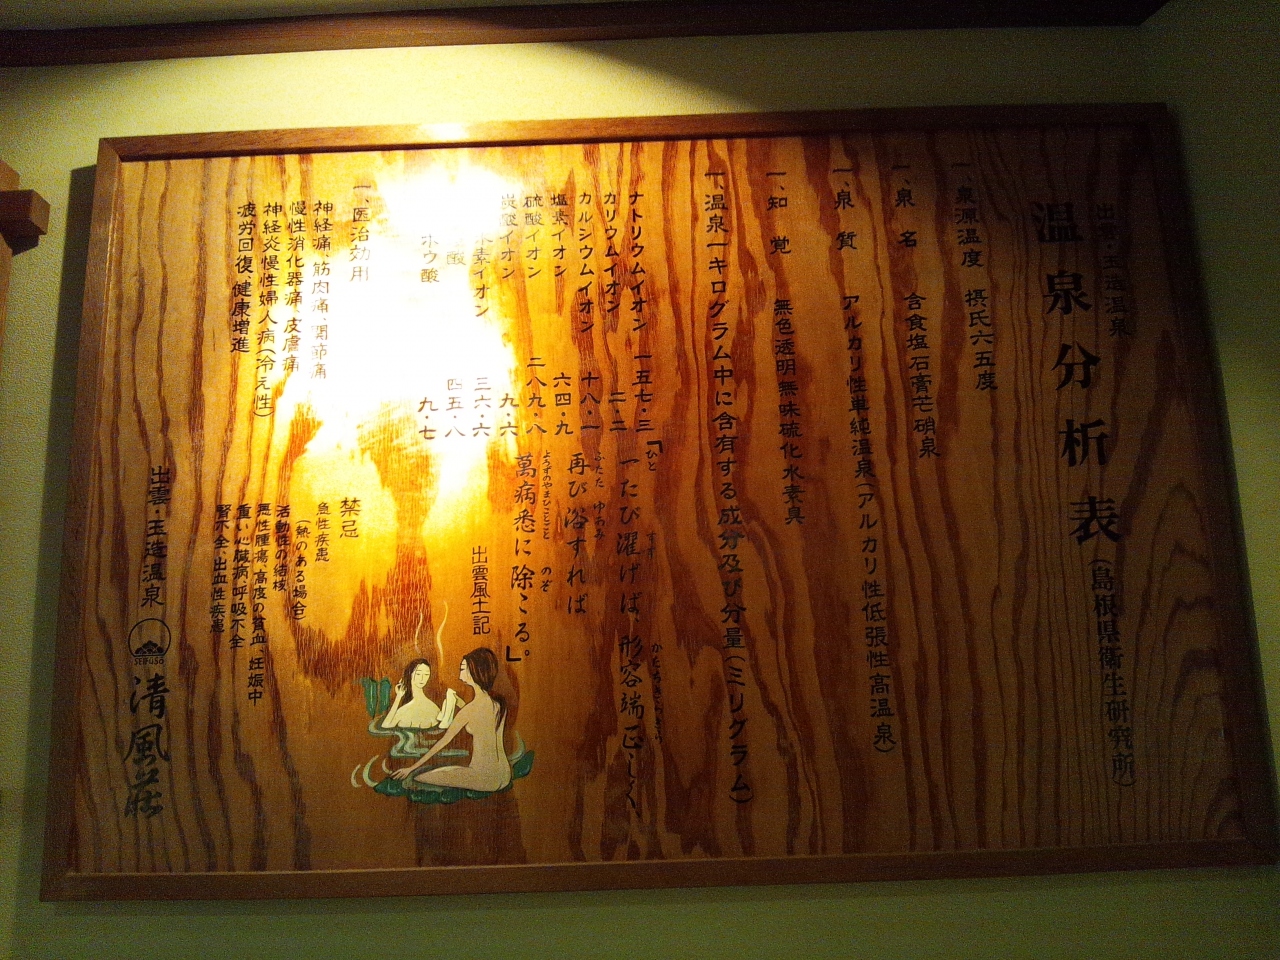 出雲・玉造温泉
温泉分析表(島根県衛生研究所)
一、泉源温度 摂氏六五度
一、泉名 含食塩石膏芒硝泉
一、泉質 アルカリ性単純温泉(アルカリ性低張性高温泉)
一、知覚 無色透明無味硫化水素臭
一、温泉一キログラム中に含有する成分及び分量(ミリグラム)
ナトリウムイオン 一五七・三
カリウムイオン 二・二
カルシウムイオン 十八・一
塩素イオン 六四・九
硫酸イオン 二八九・八
炭酸イオン 九・六
水素イオン 三六・六
酸 四五・八
ホウ酸 九・七
「一たび濯げば、形容端正しく
再び浴すれば
萬病悉に除こる。」
出雲風土記
一、医治効用
神経痛、筋肉痛、関節痛
慢性消化器痛、皮膚痛
神経炎慢性婦人病(冷え性)
疲労回復、健康増進
禁忌
急性疾患
(熱のある場合)
活動性の結核
悪性腫瘍、高度の貧血、妊娠中
重い心臓病、呼吸不全
腎不全、出血性疾患
出雲・玉造温泉
SEIFUSO
清風荘